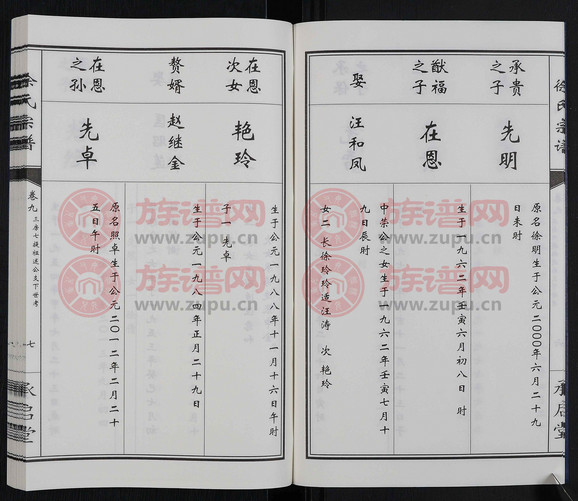 徐氏宗谱
承贵之子
先明
原名徐明生于公元二〇〇〇年六月二十九
日未时
猷福之子
在恩
生于一九六二年壬寅六月初八日 时
娶
汪和凤
中荣公之女生于一九六二年壬寅七月十
九日辰时
女二 长徐玲玲适汪涛 次 艳玲
承启堂
在恩次女
艳玲
生于公元一九八八年十一月十六日午时
子一 先卓
赘婿
赵继金
生于公元一九八四年正月二十九日
在恩之孙
先卓
原名照卓生于公元二〇一二年二月二十
五日午时
徐氏宗谱
卷九
七
承启堂
族谱网
www.zupu.cn
族谱网
www.zupu.cn
族谱网
www.zupu.cn
族谱网
www.zupu.cn